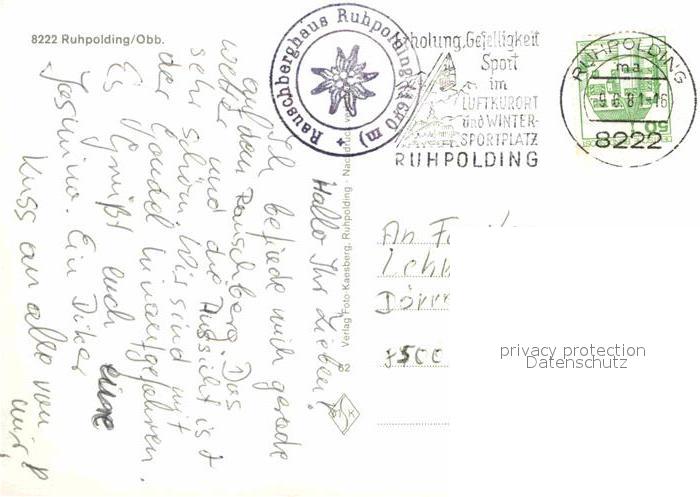 8222 Ruhpolding/Obb.
Rauschberghaus Ruhpolding (1640 m)
Erholung, Geselligkeit
Sport
im
LUFTKURORT
und WINTER-
SPORTPLATZ
RUHPOLDING
RUHPOLDING
ma
81-16
8222
50
Hallo Ihr Lieben!
Ich befinde mich gerade
auf dem Rauschberg. Das
Wetter und die Aussicht ist
sehr schön. Wir sind mit
der Gondel hinaufgefahren.
Es grüßt euch eure
Jasmina. Ein Dicker
Kuss an alle von
mir!
Verlag Foto Kaesberg, Ruhpolding
An
Lehm
Dörr
privacy protection
Datenschutz